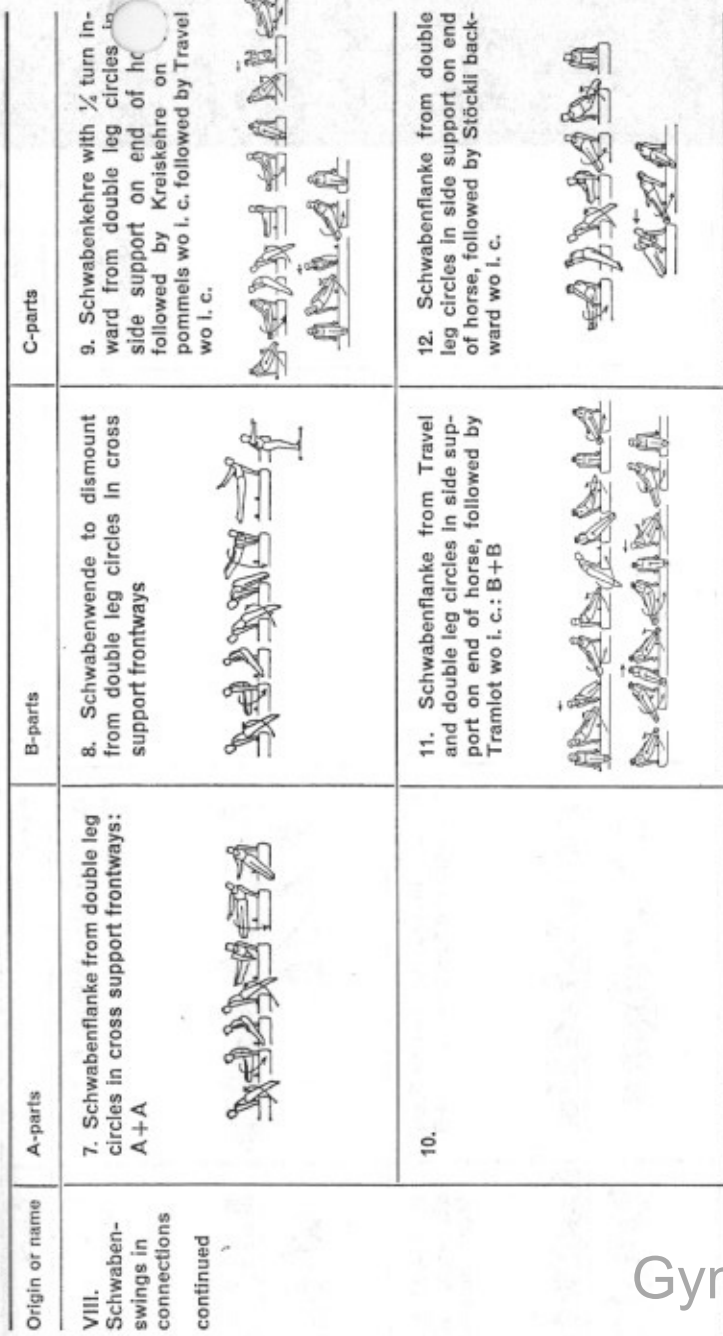 Origin or name
A-parts
B-parts
C-parts
VIII.
Schwaben-
swings in
connections
continued
7. Schwabenflanke from double leg
circles in cross support frontways:
A+A
8. Schwabenwende to dismount
from double leg circles in cross
support frontways
9. Schwabenkehre with ¼ turn in-
ward from double leg circles in
side support on end of
followed by Kreiskehre on
pommels wo i. c. followed by Travel
wo i. c.
10.
11. Schwabenflanke from Travel
and double leg circles in side sup-
port on end of horse, followed by
Tramlot wo i. c.: B+B
12. Schwabenflanke from double
leg circles in side support on end
of horse, followed by Stöckli back-
ward wo i. c.